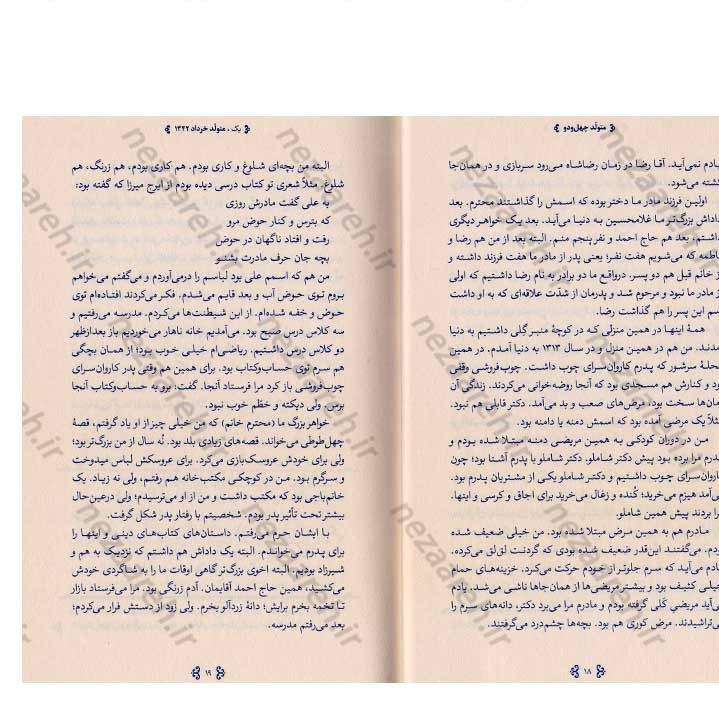 متولّد چهل‌ودو
یادم نمی‌آید. آقا رضا در زمان رضاشاه می‌رود سربازی و در همان‌جا
کشته می‌شود.
اولین فرزند مادر ما دختر بوده که اسمش را گذاشتند محترم. بعد
داداش بزرگ‌تر ما غلامحسین به دنیا می‌آید. بعد یک خواهر دیگری
داشتم، بعد هم حاج احمد و نفر پنجم منم. البته بعد از من هم رضا و
فاطمه که می‌شویم هفت نفر؛ یعنی پدر از مادر ما هفت فرزند داشته و
از خانم قبل هم دو پسر. درواقع ما دو برادر به نام رضا داشتیم که اولی
از مادر ما نبود و مرحوم شد و پدرمان از شدّت علاقه‌ای که به او داشت
اسم این پسر را هم گذاشت رضا.
همهٔ اینها در همین منزلی که در کوچهٔ منبر گلی داشتیم به دنیا
آمدند. من هم در همین منزل و در سال ۱۳۱۳ به دنیا آمدم. در همین
محلهٔ سرشور که پدرم کاروان‌سرای چوب داشت. چوب‌فروشی وقفی
بود و کنارش هم مسجدی بود که آنجا روضه‌خوانی می‌کردند. زندگی آن
زمان‌ها سخت بود، مرض‌های صعب و بد می‌آمد. دکتر قابلی هم نبود.
مثلاً یک مرضی آمده بود که اسمش دمنه یا دامنه بود.
من در دوران کودکی به همین مریضی دمنه مبتلا شده بودم و
پدرم مرا برده بود پیش دکتر شاملو. دکتر شاملو با پدرم آشنا بود؛ چون
کاروان‌سرای چوب داشتیم و دکتر شاملو یکی از مشتریان پدرم بود.
می‌آمد هیزم می‌خرید؛ کُنده و زغال می‌خرید برای اجاق و کرسی و اینها.
مرا بردند پیش همین شاملو.
مادرم هم به همین مرض مبتلا شده بود. من خیلی ضعیف شده
بودم. می‌گفتند این‌قدر ضعیف شده بودی که گردنت لق‌لق می‌کرده.
یادم می‌آید که سرم جلوتر از خودم حرکت می‌کرد. خزینه‌های حمام
خیلی کثیف بود و بیشتر مریضی‌ها از همان‌جاها ناشی می‌شد. یادم
می‌آید مریضی کَلی گرفته بودم و مادرم مرا می‌برد دکتر، دانه‌های سرم را
می‌تراشیدند. مرض کوری هم بود. بچه‌ها چشم‌درد می‌گرفتند.
۱۸
یک، متولّد خرداد ۱۳۴۲
البته من بچه‌ای شلوغ و کاری بودم. هم کاری بودم، هم زرنگ، هم
شلوغ. مثلاً شعری تو کتاب درسی دیده بودم از ایرج میرزا که گفته بود:
به علی گفت مادرش روزی
که بترس و کنار حوض مرو
رفت و افتاد ناگهان در حوض
بچه جان حرف مادرت بشنو
من هم که اسمم علی بود لباسم را درمی‌آوردم و می‌گفتم می‌خواهم
بروم توی حوض آب و بعد قایم می‌شدم. فکر می‌کردند افتاده‌ام توی
حوض و خفه شده‌ام. از این شیطنت‌ها می‌کردم. مدرسه می‌رفتیم و
سه کلاس درس صبح بود. می‌آمدیم خانه ناهار می‌خوردیم باز بعدازظهر
دو کلاس درس داشتیم. ریاضی‌ام خیلی خوب بود؛ از همان بچگی
هم سرم توی حساب‌وکتاب بود. برای همین هم وقتی پدر کاروان‌سرای
چوب‌فروشی باز کرد مرا فرستاد آنجا. گفت: برو به حساب‌وکتاب آنجا
برس. ولی دیکته و خطّم خوب نبود.
خواهر بزرگ ما (محترم خانم) که من خیلی چیز از او یاد گرفتم، قصهٔ
چهل‌طوطی می‌خواند. قصه‌های زیادی بلد بود. نُه سال از من بزرگ‌تر بود؛
ولی برای خودش عروسک‌بازی می‌کرد. برای عروسکش لباس می‌دوخت
و سرگرم بود. من در کوچکی مکتب‌خانه هم رفتم، ولی نه زیاد. یک
خانم‌باجی بود که مکتب داشت و من از او می‌ترسیدم؛ ولی درعین‌حال
بیشتر تحت تأثیر پدر بودم. شخصیتم با رفتار پدر شکل گرفت.
با ایشان حرم می‌رفتم. داستان‌های کتاب‌های دینی و اینها را
برای پدرم می‌خواندم. البته یک داداش هم داشتم که نزدیک به هم و
شیرزاد بودیم. البته اخوی بزرگ‌تر گاهی اوقات ما را به شاگردی خودش
می‌کشید، همین حاج احمد آقایمان. آدم زرنگی بود. مرا می‌فرستاد بازار
تا تخمه بخرم برایش؛ دانهٔ زردآلو بخرم. ولی زود از دستش فرار می‌کردم؛
بعد می‌رفتم مدرسه.
۱۹
nezaareh.ir